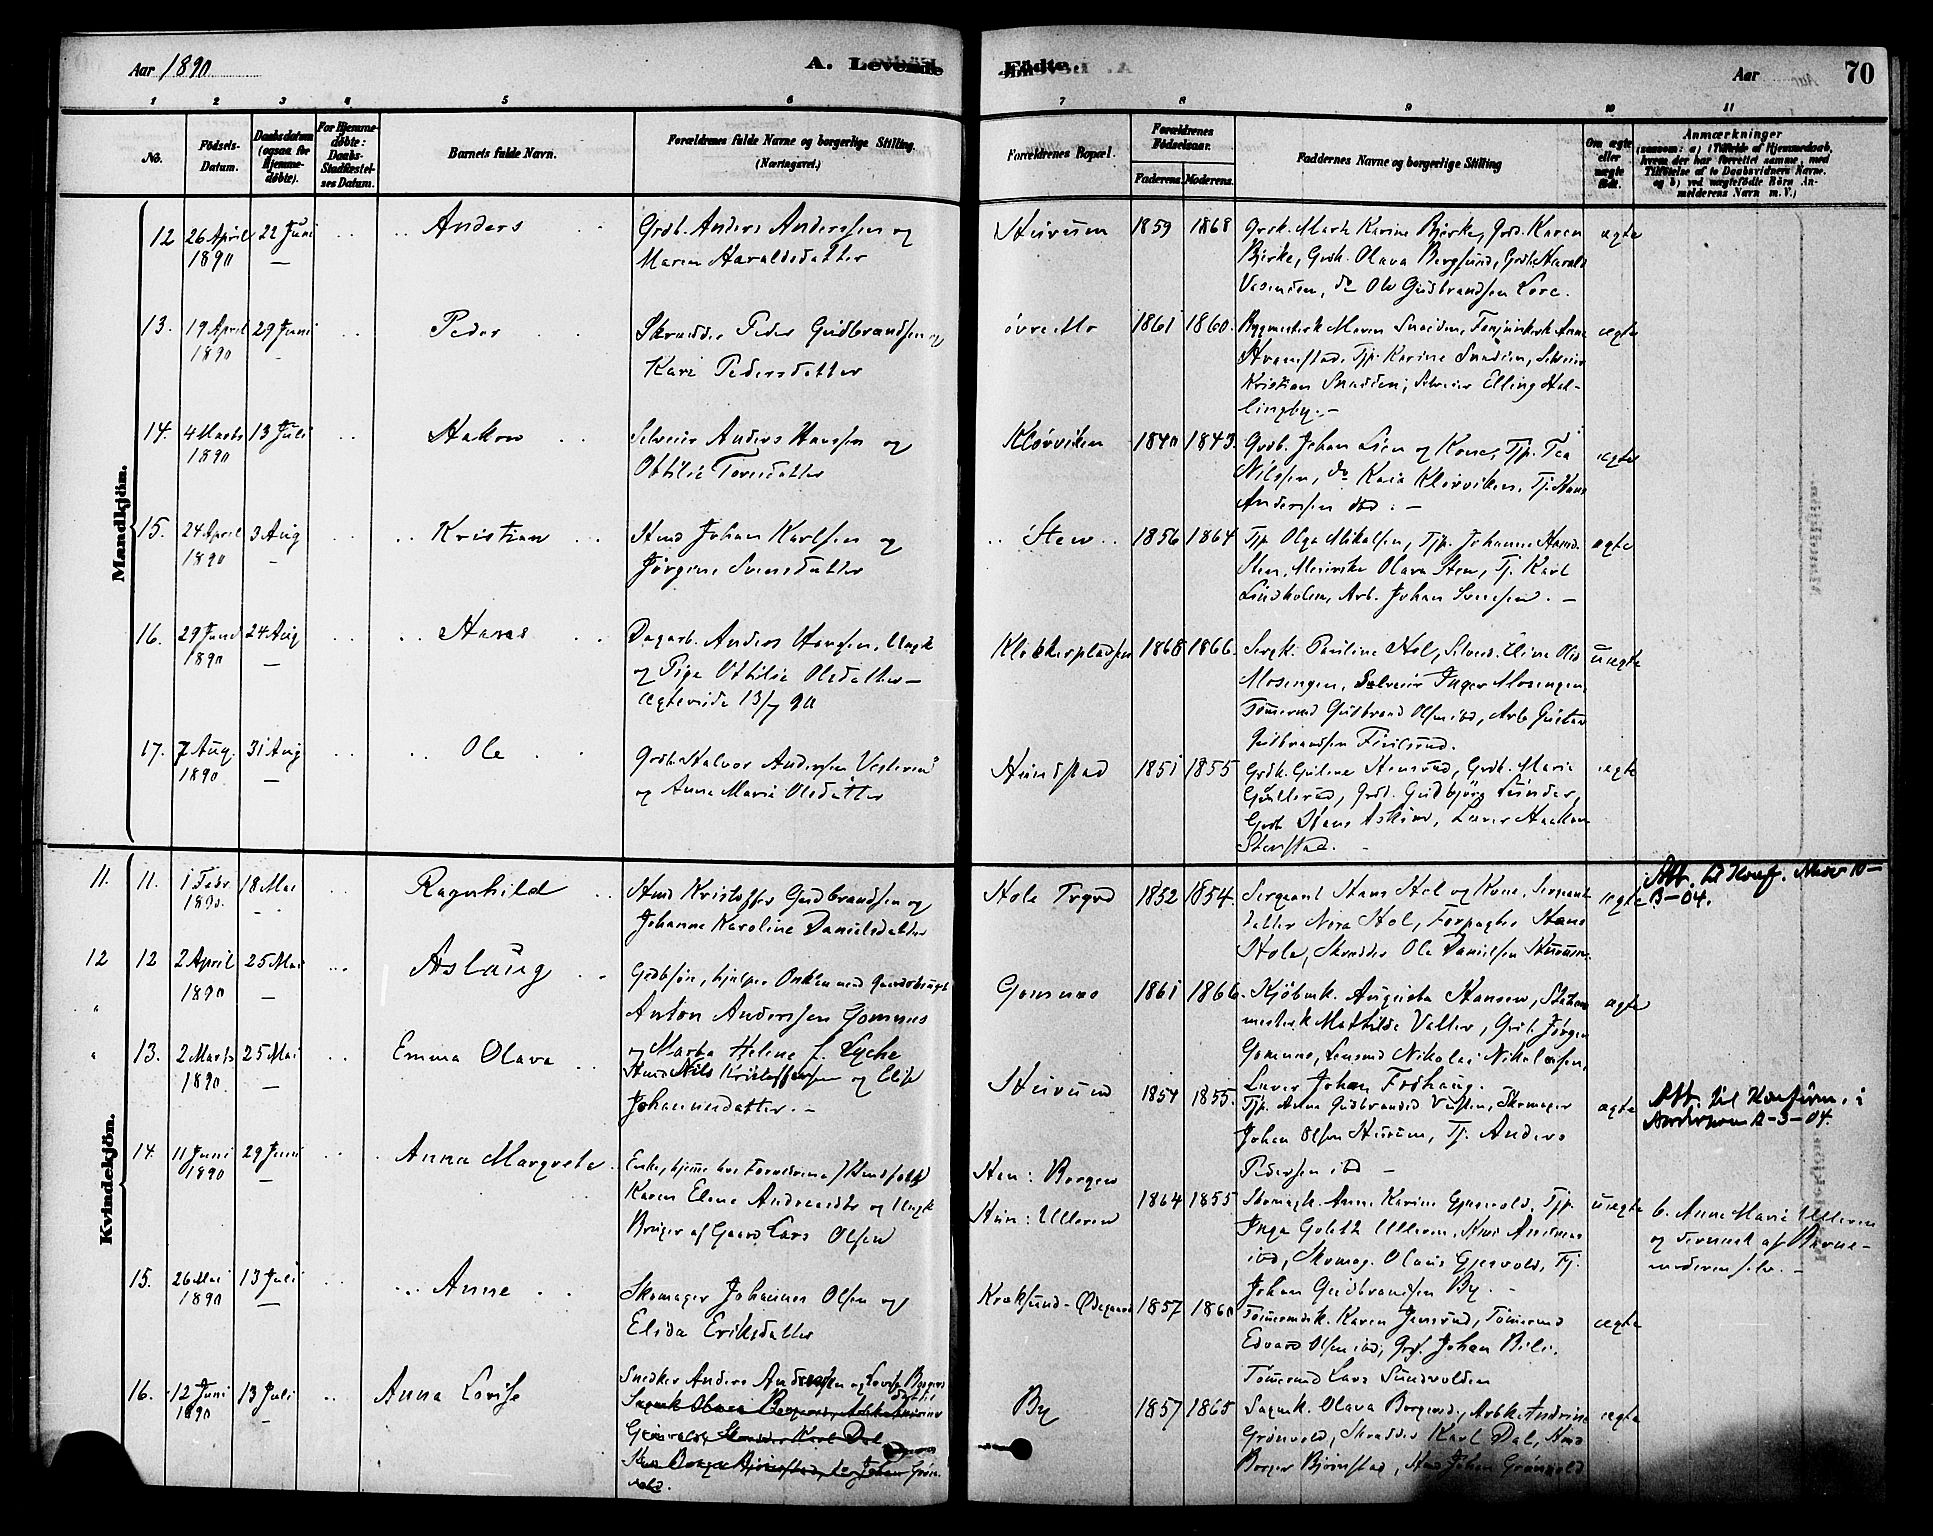 Aar 1890
A. Levende
Födte.
Aar
70
1 2 3 4 5 6 7 8 9 10 11
No.
Födsels-Datum.
Daabsdatum (ogsaa for Hjemmedøbte).
For Hjemmedøbte: Daabs-Stadfæstelses Datum.
Barnets fulde Navn.
Forældrenes fulde Navne og borgerlige Stilling.
(Næringsvei.)
Forældrenes Bopæl.
Forældrenes Födselsaar.
Faderens. Moderens.
Faddernes Navne og borgerlige Stilling
Om ægte eller uægte födt.
Anmærkninger
(saasom: a) i Tilfælde af Hjemmedaab, hvem der har forrettet samme, med Tilföielse af to Daabsvidners Navne, og b) ved uægtefödte Börn Anmelderens Navn m. V.)
Mandkjön.
12 26 April 1890 22 Juni — Anders
Grdb. Anders Anderssen og
Maren Haraldsdatter
Hurum 1859 1868
Grdk. Marte Karine Bjerke, Grdk. Karen
Bjerke, Grdk. Olava Bergsund, Grdb. Harald
Vesenden, do Ole Gudbrandsen Lore.
ægte
13. 19 April 1890 29 Juni - Peder
Skrædder Peder Gudbrandsen og
Kari Pedersdatter
øvre Mo 1861 1860.
Bygmesterk. Maren Snadden, Anne
Tjp. Karine Snadden, Selveier
Kristian Snadden, Selveier Elling Hal-
lingby.-
ægte
14. 4 Marts 1890 13 Juli Hakon
Selveier Anders Hanssen og
Othilie Toresdatter
Kløvviken 1840 1843.
Grdb. Johan Lien og Kone, Tjp. Tea
Nilssen, do Karia Kløvviken, Tj. Hans
Anderssen ibd. -
ægte
15. 24 April 1890 3 Aug - Kristian
Hmd Johan Karlsen og
Jørgine Svensdatter
Sten 1856 1864
Tjp Olga Mikalsen, Tjp. Johanne
Sten, Meierske Olava Sten, Tj. Karl
Lindholm, Arb. Johan Svensen. -
ægte
16. 29 Juni 1890 24 Aug — Hans
Dagarb. Anders Hanssen, Ungk
og Pige Othilie Olsdatter -
ægteviede 13/7 90
Klokkerpladsen 1868 1866.
Sergk. Pauline Hol, Eline Ols
Mosengen, Selveier Inger Mosengen,
Tømmermd Gudbrand Olsen ibd, Arb Gustav
Gudbrandsen
uægte
17. 7 Aug. 1890 31 Aug — Ole
Grdb. Halvor Andersen Vesteren
og Anne Marie Olsdatter
Hundstad 1851 1855
Grdk. Guline Hensrud, Grdk. Maria
Gullerud, Grdk. Gudbjørg
Grdb Hans Askim, Lærer Haakon
Stenstad. -
ægte
Kvindekjön.
11. 11. 1 Febr 1890. 18 Mai Ragnhild
Hmd Kristoffer Gudbrandsen og
Johanne Karoline Danielsdatter
Hole Prgrd 1852 1854.
Sergeant Hans Hol og Kone, Sergeant
datter Nora Hol, Forpagter Hans
Hole, Skrædder Ole Danielsen Hurum
ægte
Att. til Konf. 10-
3-04.
12 12 2 April 1890 25 Mai — Aslaug
Grdbsøn, hjelper Onkelen med Gaardsbruget
Anton Anderssen Gomnes
og Marta Helene L. Lyche
Gomnes 1861 1866.
Kjøbmk. Augusta Hansen, Stations
mesterk Mathilde Vatter, Grdb. Jørgen
Gomnes, Lensmd Nikolai Nikolaisen,
Lærer Johan Frøhaug.
ægte
13. 2 Marts 1890 25 Mai — Emma Olava
Hmd Nils Kristoffersen og Elise
Johannesdatter. -
Hurum 1854 1855.
Tjp. Anna Gudbrandsd Skomager
Johan Olsen Hurum, Tj. Anders
Pedersen ibd -
ægte
Att. til Konfirm. i
2-3-04.
14. 11 Juni 1890 29 Juni — Anna Margrete
Enke, hjemme hos Forældrene
Karen Elene Andreasdtr og Ungk
Bruger af Gaard Lars Olsen
Han: Borgen
Hun: Ulleren 1864 1855
Skomagk. Anne Karine Gjesvold, Tjp.
Inga Golath Ulleren, Hmd Andreas
ibd, Skomag. Olaus Gjesvold, Tj.
Johan Gudbrandsen By. -
uægte
b. Anne Marie Ulleren
og dernæst af Barne-
moderen selv. -
15. 26 Mai 1890 13 Juli — Anne
Skomager Johannes Olsen og
Elida Eriksdatter
Kroksund-Ødegaard 1857 1860
Tømmermdk. Karen Jensrud, Tømmermd
Edvard Olsen ibd, Johan Bili,
Tømmermd Lars Sundvolden
ægte
16. 12 Juni 1890 13 Juli - Anna Lovise
Snedker Anders Andreassen og Lovise Borgersdatter
Sagmk Olava Borgersd,
Grønvold, Skrædder Karl Dal
Hmd Borger Bjørnstad, Johan Grøn-
vold.
By 1857 1865
Sagmk. Olava Borgersd., Arbk. Andrine
Grønvold, Skrædder Karl Dal, Hmd
Borger Bjørnstad, Hmd Johan Grønvold
ægte